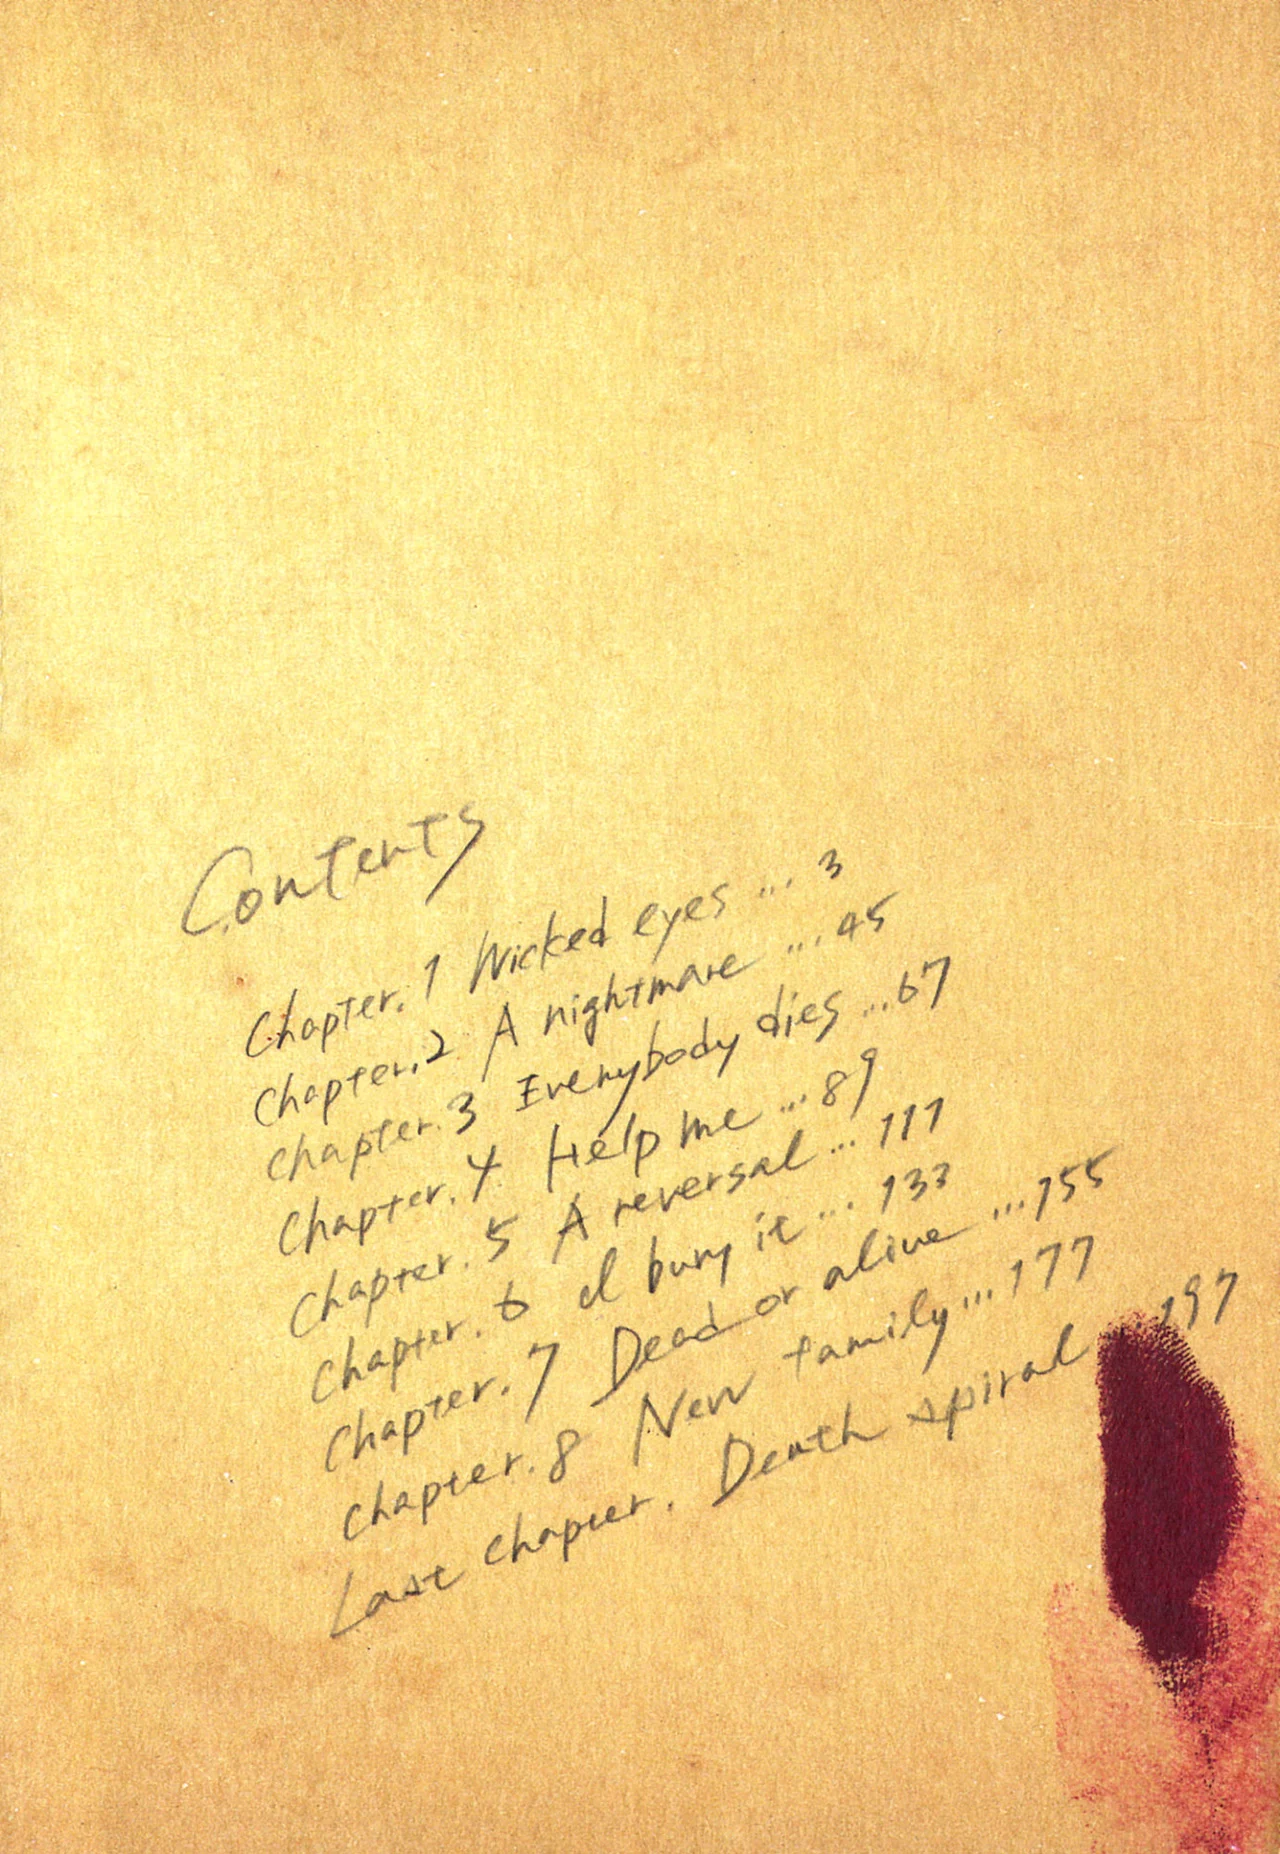 Contents
Chapter.1 Wicked eyes ... 3
Chapter.2 A nightmare ... 45
Chapter.3 Everybody dies ... 67
Chapter.4 Help me ... 89
Chapter.5 A reversal ... 111
Chapter.6 I bury it ... 133
Chapter.7 Dead or alive ... 155
Chapter.8 New family ... 177
Last chapter. Death spiral ... 197